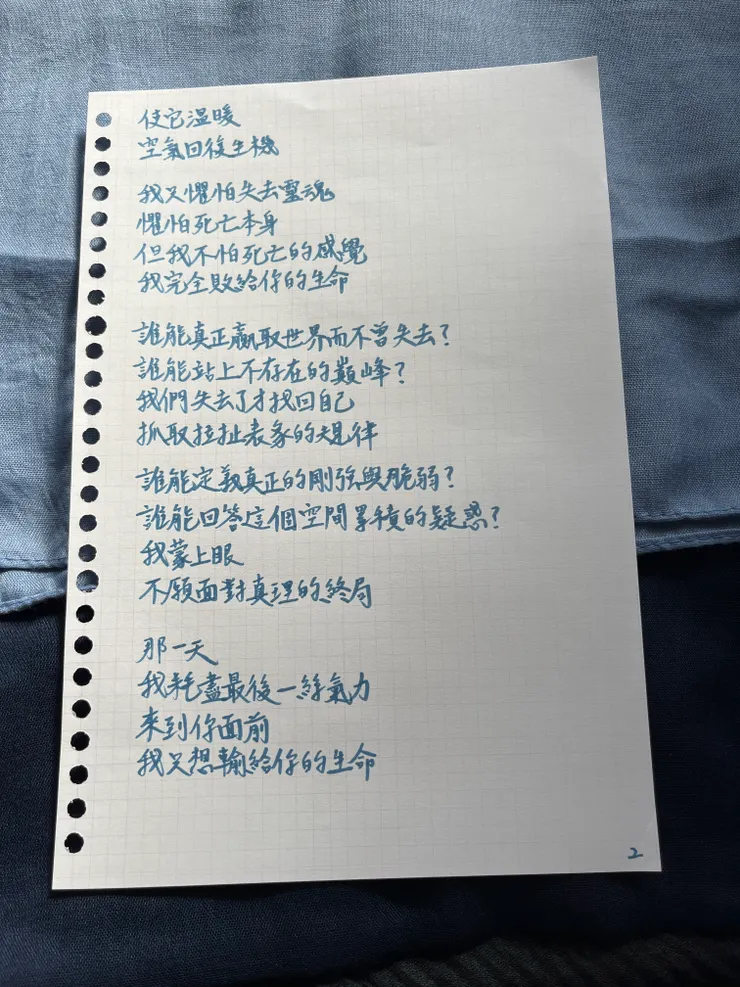 使它溫暖
空氣回復生機
我又懼怕失去靈魂
懼怕死亡本身
但我不怕死亡的感覺
我完全敗給你的生命
誰能真正贏取世界而不曾失去？
誰能站上不存在的巔峰？
我們失去了才找回自己
抓取拉扯表象的規律
誰能定義真正的剛強與脆弱？
誰能回答這個空間累積的疑惑？
我蒙上眼
不願面對真理的終局
那一天
我耗盡最後一絲氣力
來到你面前
我只想輸給你的生命
2